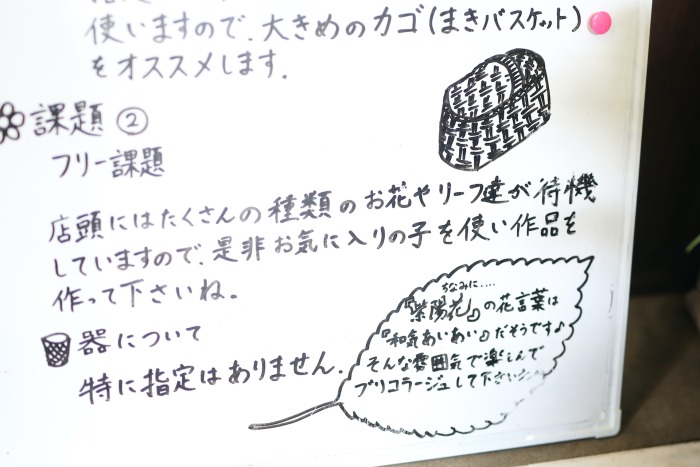 使いますので、大きめのカゴ(まきバスケット)
をオススメします.
課題②
フリー課題
店頭にはたくさんの種類のお花やリーフ達が待機
していますので、是非お気に入りの子を使い作品を
作って下さいね。
器について
特に指定はありません.
ちなみに....
『紫陽花』の花言葉は
『和気あいあい』だそうです♪
そんな雰囲気で楽しんで
ブリコラージュして下さい